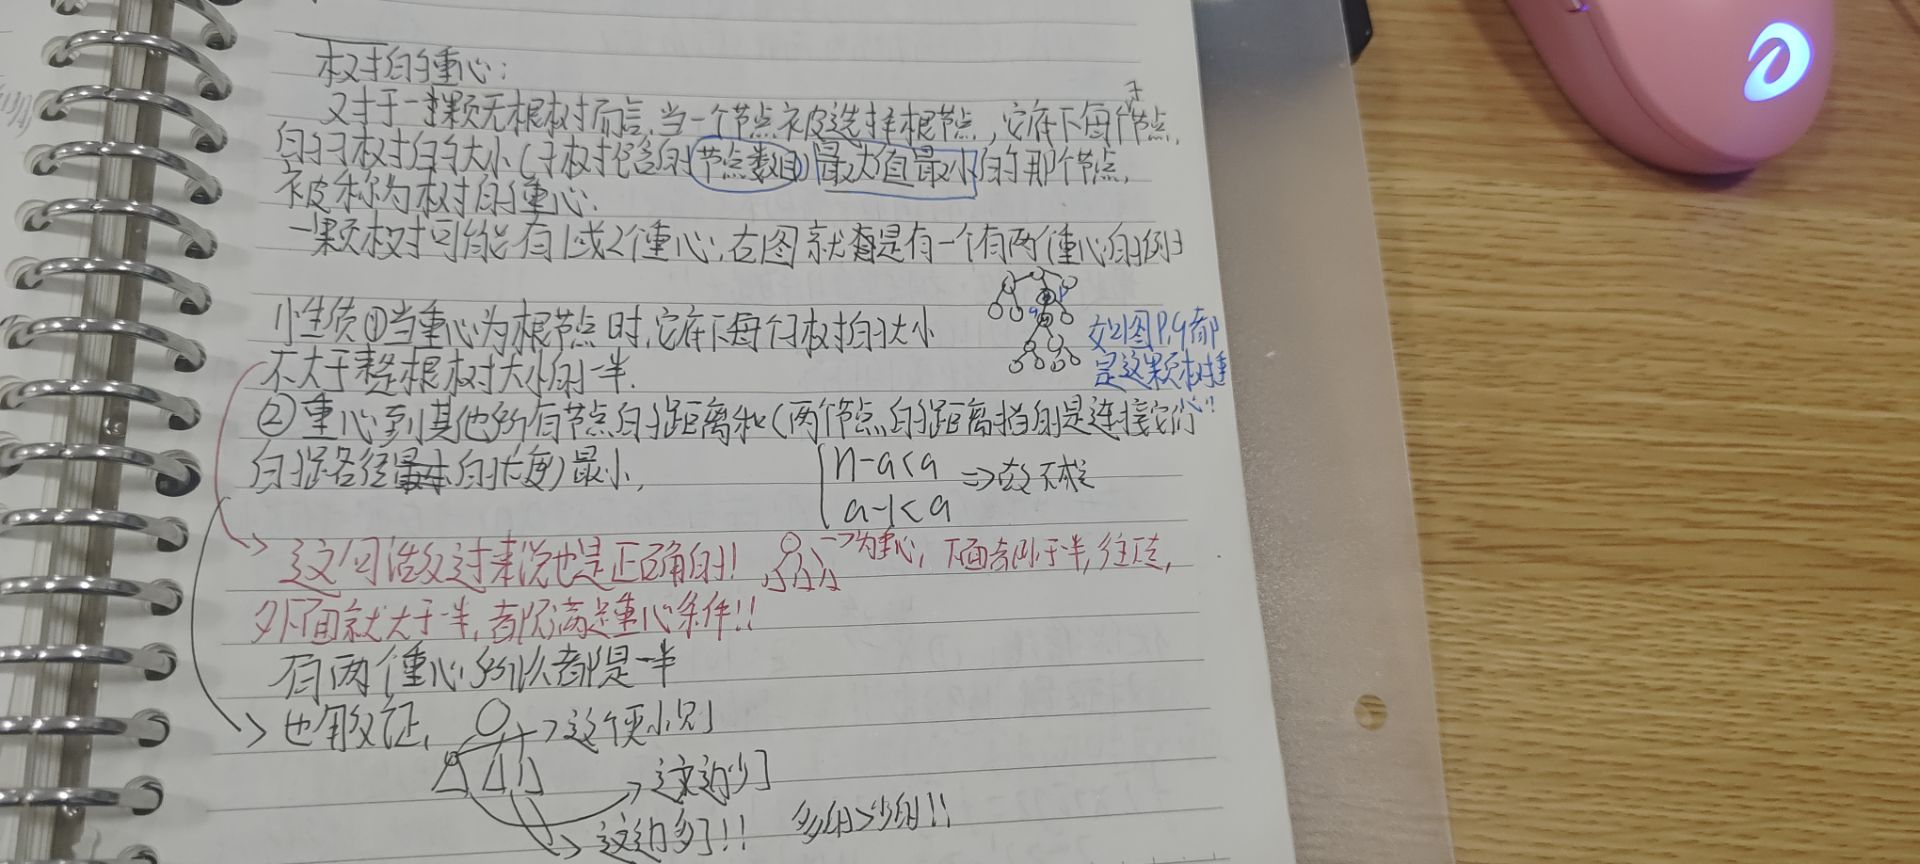 树的重心:
对于一颗无根树而言,当一个节点被选择根节点,它底下每个子节点,
的子树的大小(子树包含的节点数目)最大值最小的那个节点,
被称为树的重心.
一颗树可能有1或2个重心,右图就是有一个有两个重心的例子
小性质①当重心为根节点时,它底下每个子树的大小
不大于整根树大小的一半.
如图P,q都
是这颗树重
心!!
②重心到其他所有节点的距离和(两个节点的距离指的是连接它们
的路径的长度)最小,
n-a<a
a-1<a
=>故不成立
这句话反过来说也是正确的! ->为重心,下面都小于一半,往下走,
外面就大于一半,都不满足重心条件!!
有两个重心所以都是一半
也用反证, ->这个更小则
这边少了
这边多了!! 多的>少的!!